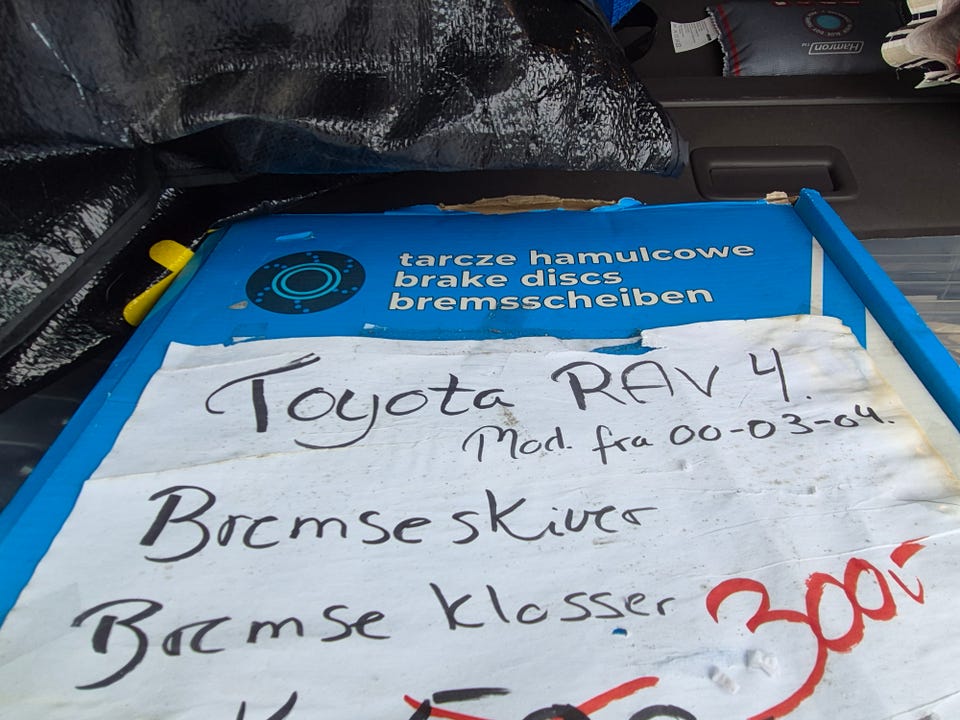 Hamron™
tarcze hamulcowe
brake discs
bremsscheiben
Toyota RAV 4.
Mod. fra 00-03-04.
Bremseskiver
Bremse klosser 300,-